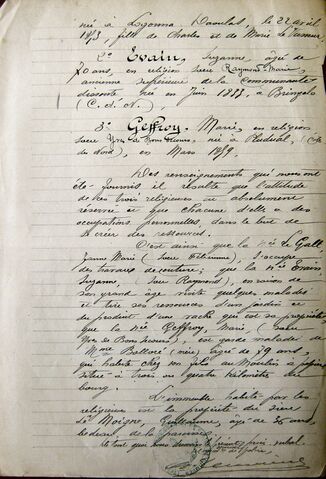 née à Logonna Daoulas, le 22 avril
1873, fille de Charles et de Marie Le
2° Evain, Suzanne, âgé de
70 ans, en religion sœur Raymond Marie,
ancienne supérieure de la Communauté
dissoute née en Juin 1833, à
(C. d. N.),
3° Geffroy, Marie, en religion
sœur Yves de Bon Secours, née à Pludual, (Côtes
du Nord), en Mars 1879.
Des renseignements qui nous ont
été fournis il résulte que l'attitude
de ces trois religieuses est absolument
réservée et que chacune d'elles a des
occupations personnelles dans le but de
se créer des ressources.
C'est ainsi que la née Le Gall
Jeanne Marie (sœur Etienne) s'occupe
des travaux de couture; que la née Evain
Suzanne, (sœur Raymond), en raison de
son grand âge visite quelques malades
et tire ses ressources d'un jardin et
du produit d'une vache qui est sa propriété
que la née Geffroy, Marie, (sœur
Yves de Bon Secours), est garde malade de
Mme Bolloré (mère) âgée de 79 ans,
qui habite chez son fils au Moulin à papier
situé à trois ou quatre kilomètres du
bourg.
L'immeuble habité par les
religieuses est la propriété du sieur
Le Moigne, Guillaume, âgé de 30 ans,
bedeau de la paroisse.